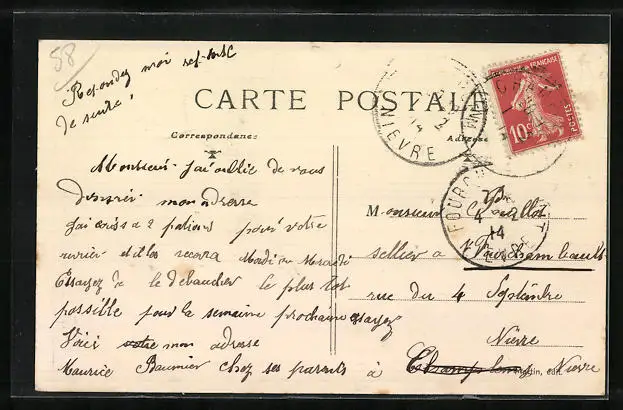 58
Repondez moi
de suite,
CARTE POSTALE
Correspondance
Adresse
Monsieur j'ai oublié de vous
donner mon adresse
j'ai écris a 2 patrons pour votre
ouvrier et il les recevra Mardi ou Mercredi
Essayez de le debaucher le plus tot
possible pour la semaine prochaine essayez
Voici votre mon adresse
Maurice Baumier chez ses parents à Champlemy Nièvre
Monsieur
sellier à Fourchambault
rue du 4 Septembre
Nièvre
édit.
NIEVRE
14
FOURCHAMBAULT
4
14
REPUBLIQUE FRANÇAISE
10c
POSTES